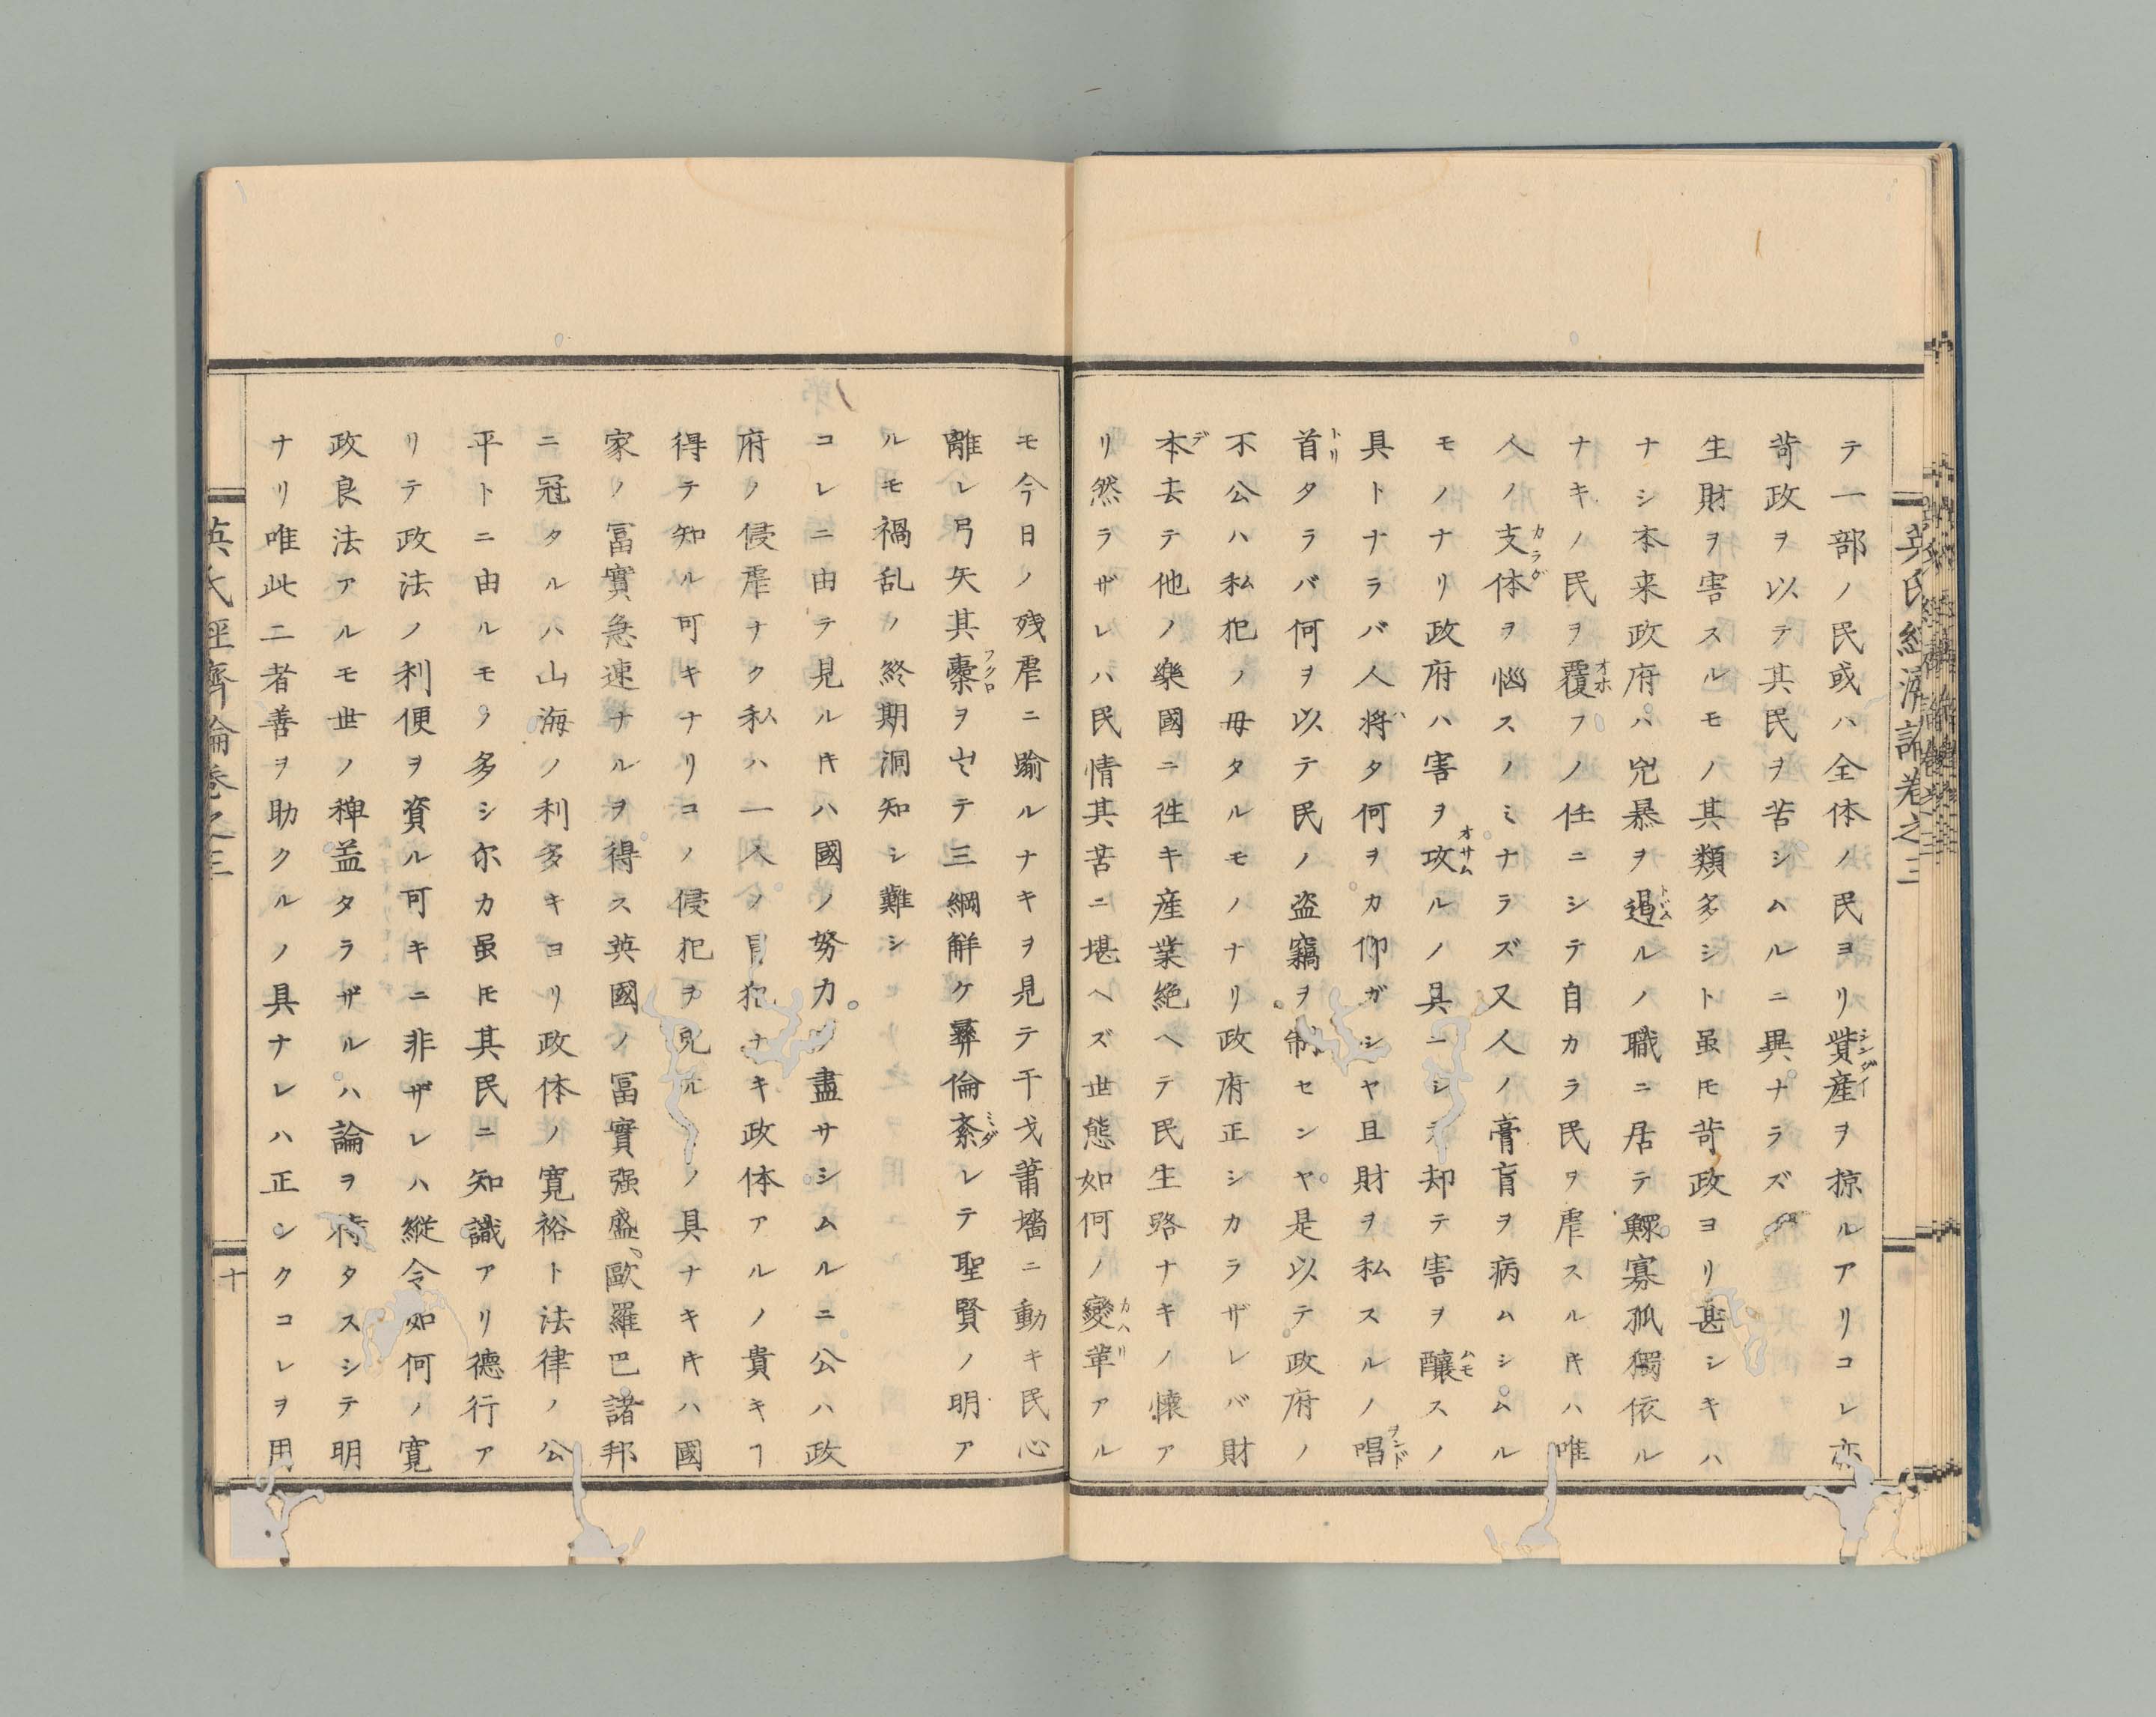 テ一部ノ民或ハ全体ノ民ヨリ貲産ヲ掠ルアリコレ亦
苛政ヲ以テ其民ヲ苦シムルニ異ナラズ
生財ヲ害スルモノ其類多シト虽𪜈苛政ヨリ甚シキハ
ナシ本来政府ハ兇暴ヲ遏ルノ職ニ居テ鰥寡孤獨依ル
ナキノ民ヲ覆フノ任ニシテ自カラ民ヲ虐スルキハ唯
人ノ支体ヲ惱スノミナラズ又人ノ膏肓ヲ病ムシムル
モノナリ政府ハ害ヲ攻ルノ具ニシテ却テ害ヲ釀スノ
具トナラバ人将タ何ヲカ仰ガンヤ且財ヲ私スルノ唱
首タラバ何ヲ以テ民ノ盗竊ヲ制センヤ是以テ政府ノ
不公ハ私犯ノ毋タルモノナリ政府正シカラザレバ財
本去テ他ノ樂國ニ徃キ産業絶ヘテ民生路ナキノ懐ア
リ然ラザレハ民情其苦ニ堪ヘズ世態如何ノ變革アル
モ今日ノ残虐ニ踰ルナキヲ見テ干戈蕭墻ニ動キ民心
離レ弓矢其櫜ヲ出テ三綱觧ケ彛倫紊レテ聖賢ノ明ア
ルモ禍乱ノ終期洞知シ難シ
コレニ由テ見ルキハ國ノ努力ヲ盡サシムルニ公ハ政
府ノ侵虐ナク私ハ一人ノ冒犯ナキ政体アルノ貴キヿ
得テ知ル可キナリコノ侵犯ヲ見ルノ具ナキキハ國
家ノ冨實急速ナルヲ得ス英國ノ冨實强盛歐羅巴諸邦
ニ冠タルハ山海ノ利多キヨリ政体ノ寛裕ト法律ノ公
平トニ由ルモノ多シ尓カ虽𪜈其民ニ知識アリ德行ア
リテ政法ノ利便ヲ資ル可キニ非ザレハ縱令如何ノ寛
政良法アルモ世ノ裨益タラザルハ論ヲ待タスシテ明
ナリ唯此二者善ヲ助クルノ具ナレハ正シクコレヲ用
英氏經濟論卷之三
十